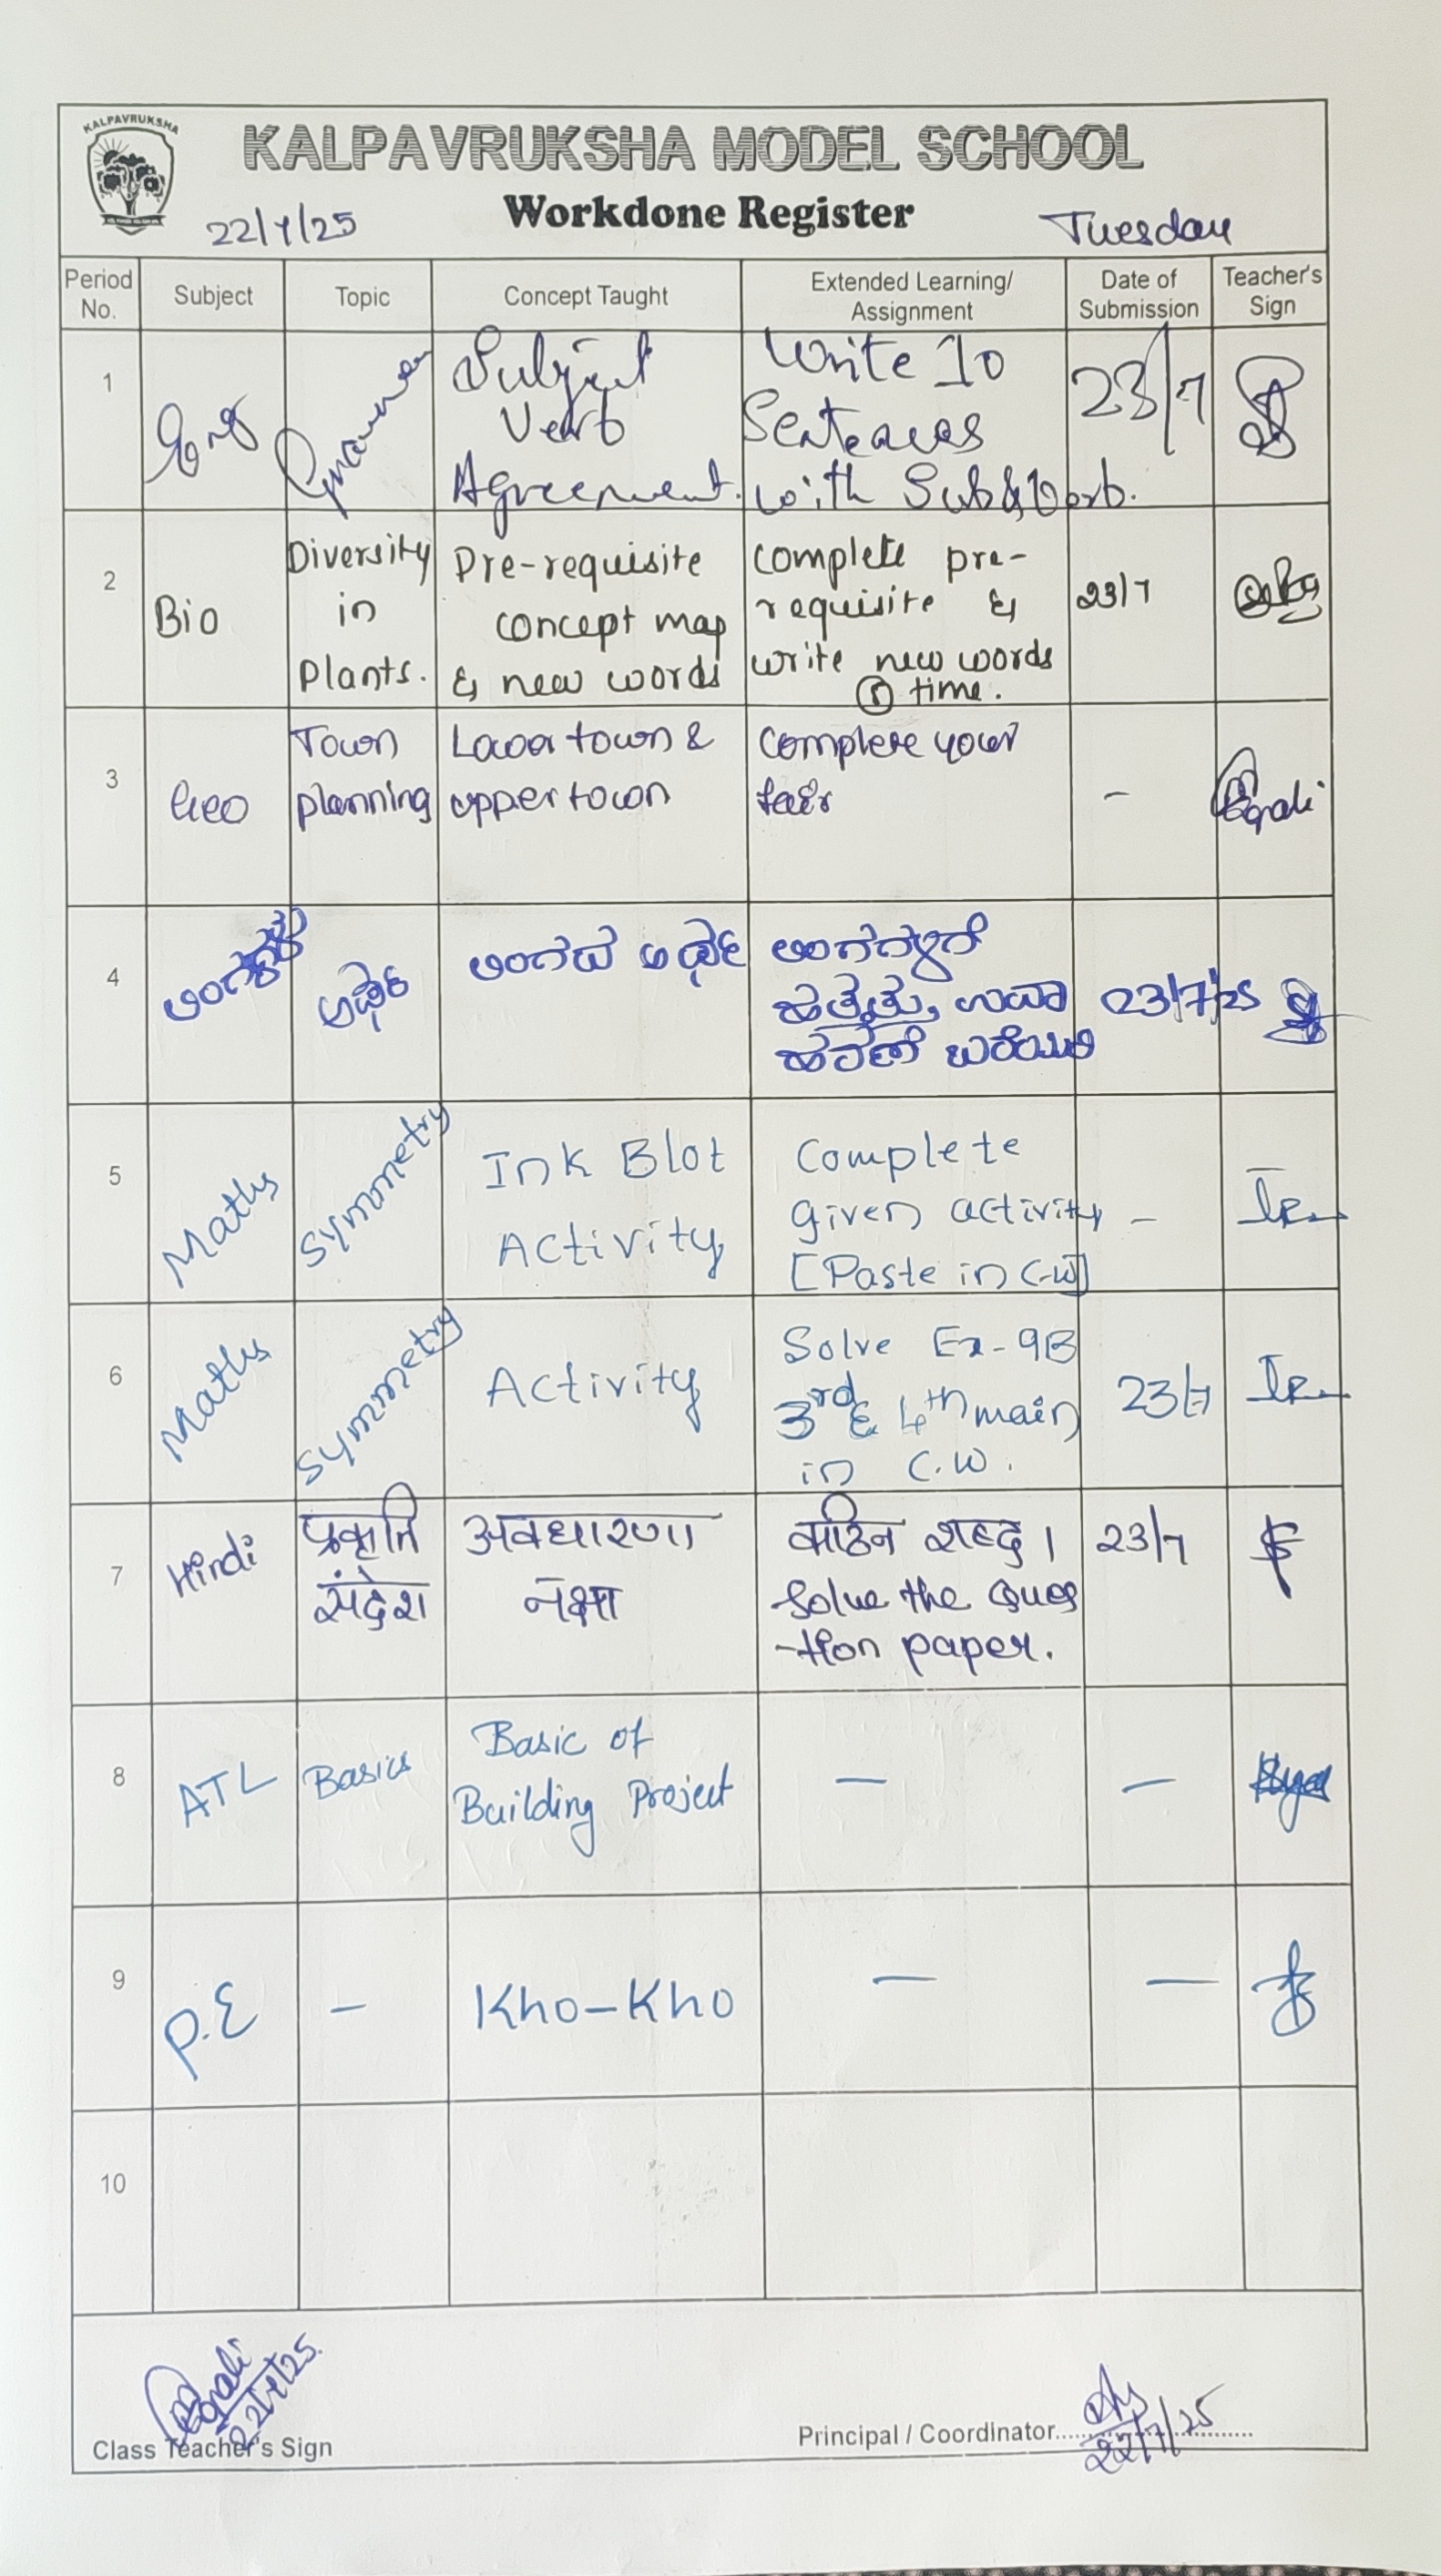 KALPAVRUKSHA
KALPAVRUKSHA MODEL SCHOOL
22/7/25 Workdone Register Tuesday
Period No. Subject Topic Concept Taught Extended Learning/ Assignment Date of Submission Teacher's Sign
1 Eng Grammer Subject Verb Agreement. Write 10 Sentences with Sub & Verb. 23/7
2 Bio Diversity in Plants. Pre-requisite concept map & new words complete pre-requisite & write new words ⑤ time. 23/7
3 Geo Town planning Lower town & upper town complete your fair -
4 ಲಿಂಗಗಳು ಅರ್ಥ ಲಿಂಗದ ಅರ್ಥ ಲಿಂಗಗಳಿಗೆ ಹತ್ತತ್ತು ಉದಾ ಹರಣೆ ಬರೆಯಿರಿ 23/7/25
5 Maths Symmetry Ink Blot Activity Complete given activity [Paste in C.W] -
6 Maths Symmetry Activity Solve Ex-9B 3rd & 4th main in C.W. 23/7
7 Hindi प्रकृति संदेश अवधारणा नक्षा कठिन शब्द। Solve the Ques-tion paper. 23/7
8 ATL Basics Basic of Building Project - -
9 P.E - Kho-Kho - -
10
22/7/25
Class Teacher's Sign
Principal / Coordinator
22/7/25